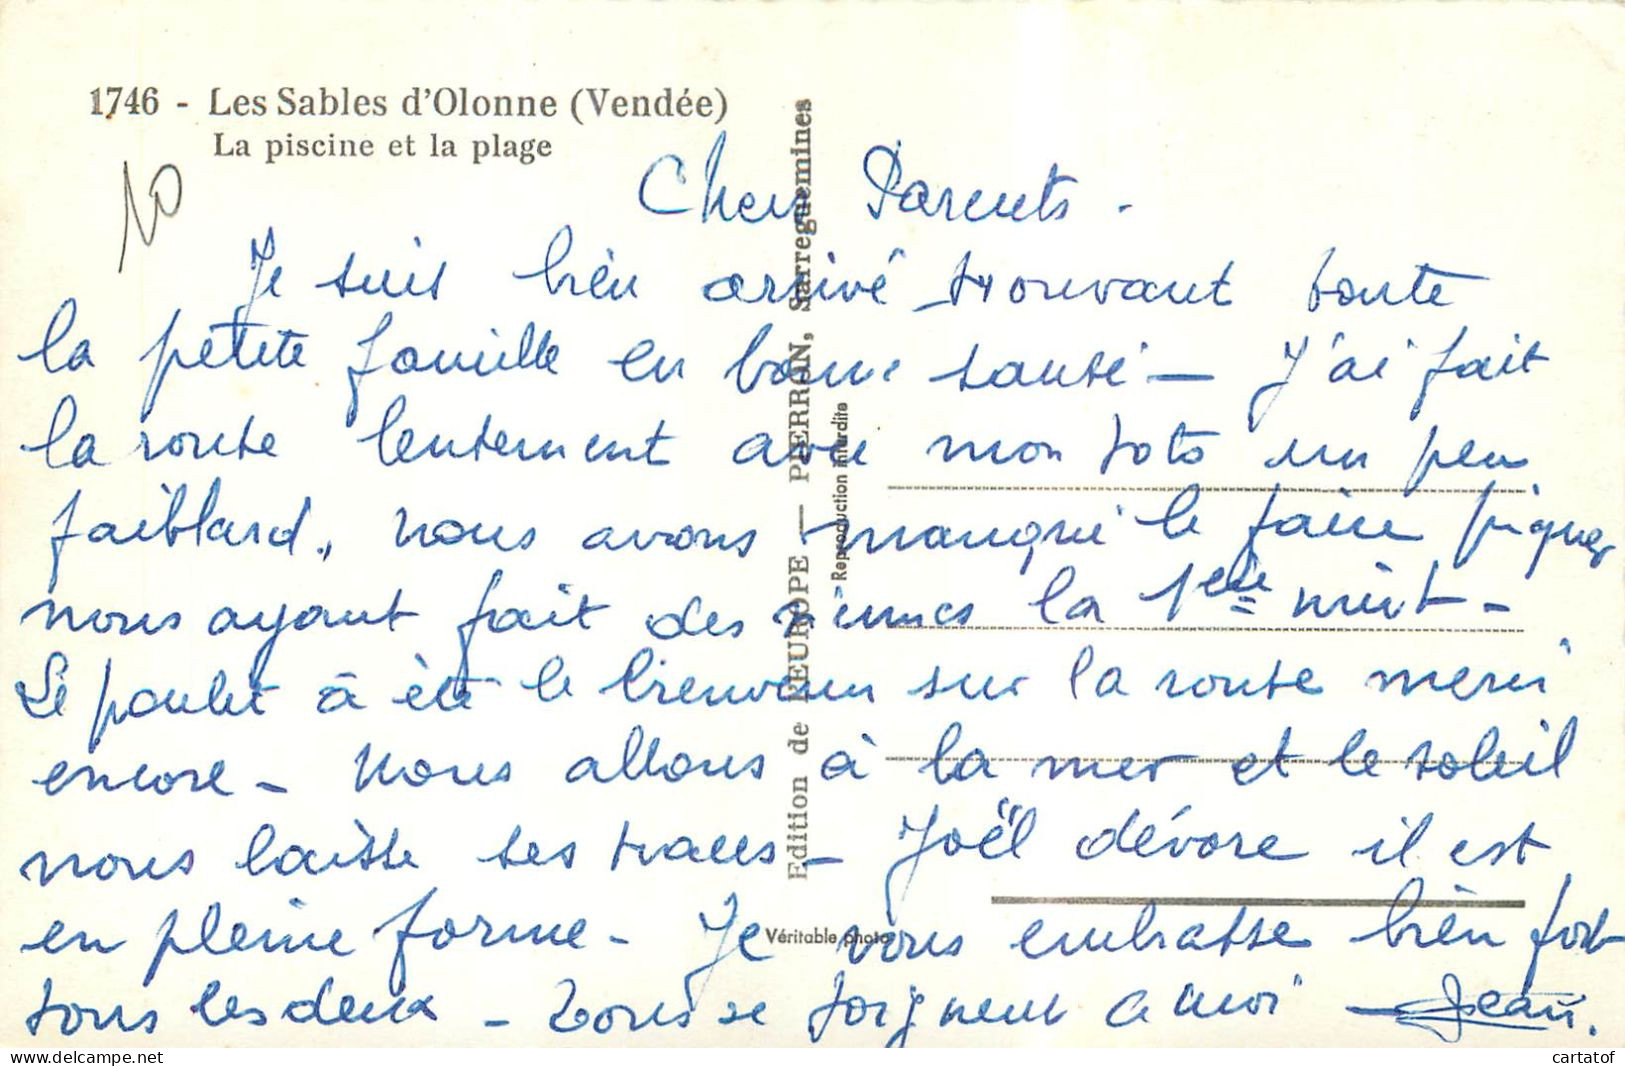 1746 - Les Sables d'Olonne (Vendée)
La piscine et la plage
10
Cher Parents.
Je suis bien arrivé trouvant toute
la petite famille en bonne santé — J'ai fait
la route lentement avec mon toto un peu
faiblard, nous avons manqué le faire piquer
nous ayant fait des siennes la 1ere nuit -
Le poulet à été le bienvenu sur la route merci
encore - Nous allons à la mer et le soleil
nous laisse ses traces - Joël dévore il est
en pleine forme - Je vous embrasse bien fort
tous les deux - Tous se joignent a moi - Jean.
Edition de l'EUROPE — PIERRON, Sarreguemines
Reproduction interdite
Véritable photo
cartatof